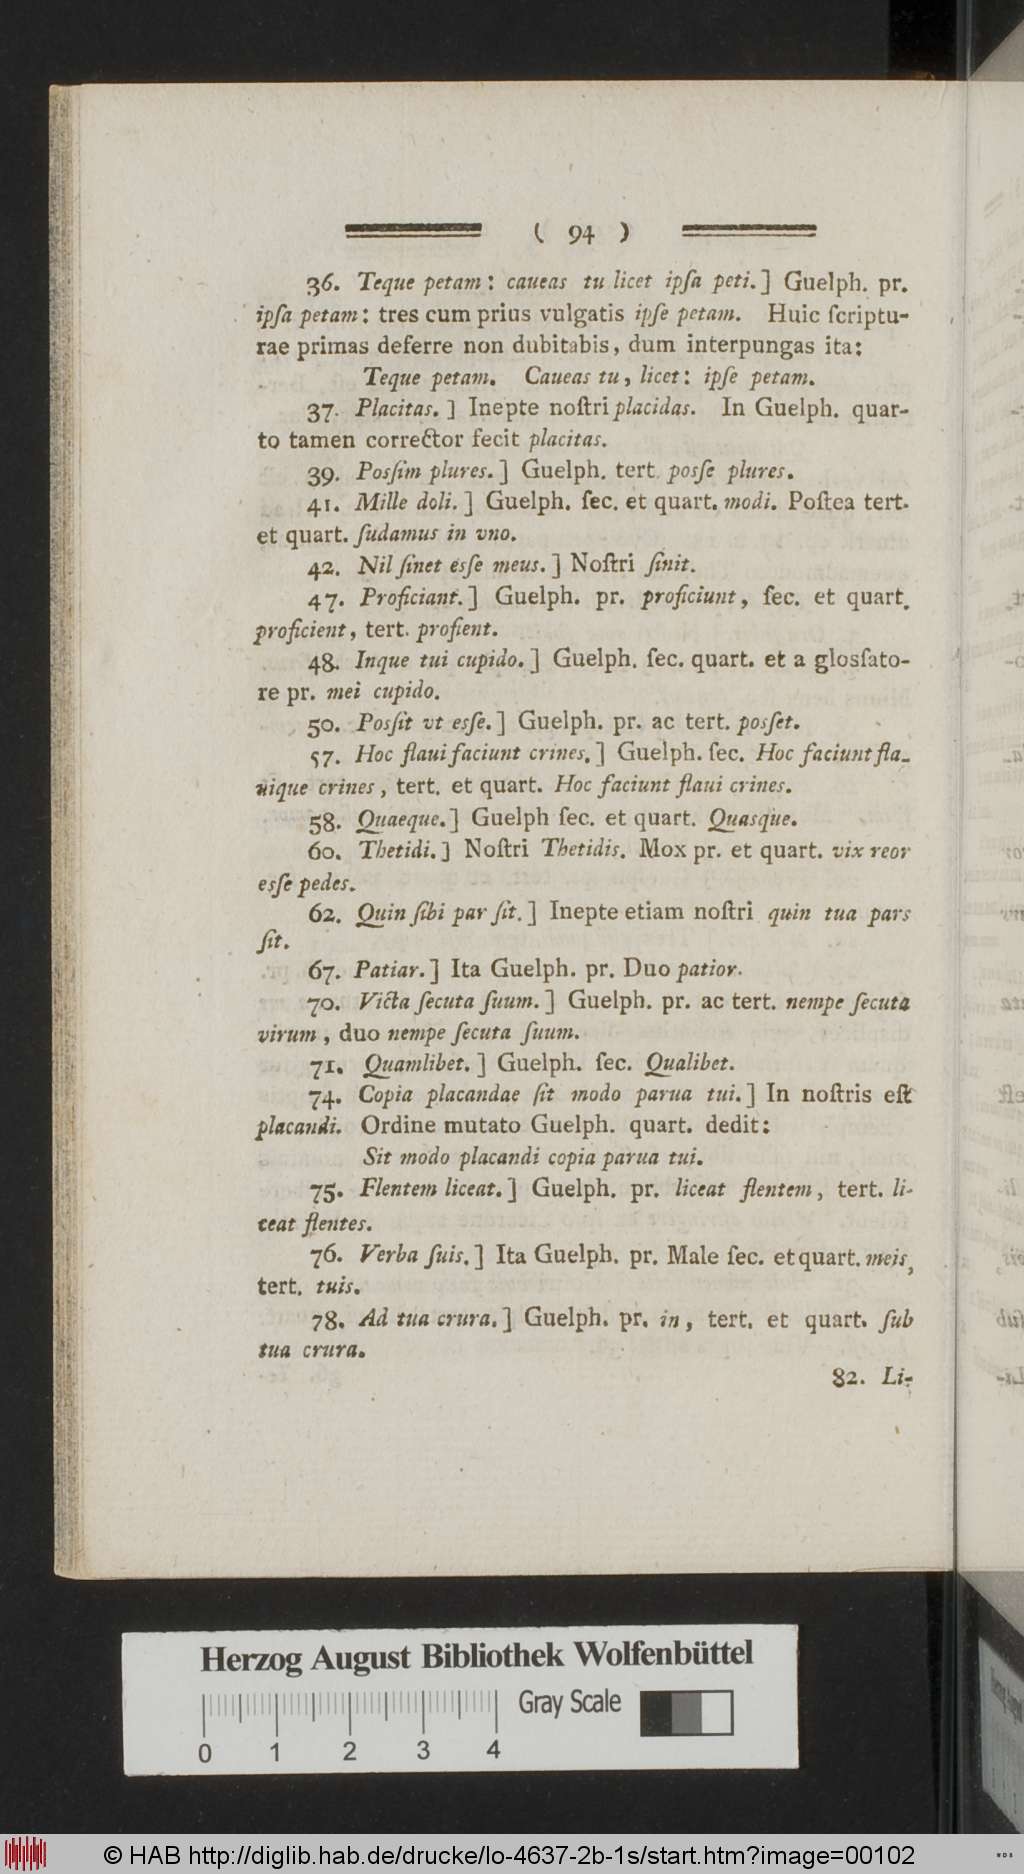 ( 94 )
36. Teque petam: caueas tu licet ipſa peti.] Guelph. pr.
ipſa petam: tres cum prius vulgatis ipſe petam. Huic ſcriptu-
rae primas deferre non dubitabis, dum interpungas ita:
Teque petam. Caueas tu, licet: ipſe petam.
37. Placitas.] Inepte noſtri placidas. In Guelph. quar-
to tamen corrector fecit placitas.
39. Posſim plures.] Guelph. tert. posſe plures.
41. Mille doli.] Guelph. ſec. et quart. modi. Poſtea tert.
et quart. ſudamus in vno.
42. Nil ſinet esſe meus.] Noſtri ſinit.
47. Proficiant.] Guelph. pr. proficiunt, ſec. et quart.
proficient, tert. profient.
48. Inque tui cupido.] Guelph. ſec. quart. et a glosſato-
re pr. mei cupido.
50. Posſit vt esſe.] Guelph. pr. ac tert. posſet.
57. Hoc flaui faciunt crines.] Guelph. ſec. Hoc faciunt fla-
uique crines, tert. et quart. Hoc faciunt flaui crines.
58. Quaeque.] Guelph ſec. et quart. Quasque.
60. Thetidi.] Noſtri Thetidis. Mox pr. et quart. vix reor
esſe pedes.
62. Quin ſibi par ſit.] Inepte etiam noſtri quin tua pars
ſit.
67. Patiar.] Ita Guelph. pr. Duo patior.
70. Victa ſecuta ſuum.] Guelph. pr. ac tert. nempe ſecuta
virum, duo nempe ſecuta ſuum.
71. Quamlibet.] Guelph. ſec. Qualibet.
74. Copia placandae ſit modo parua tui.] In noſtris eſt
placandi. Ordine mutato Guelph. quart. dedit:
Sit modo placandi copia parua tui.
75. Flentem liceat.] Guelph. pr. liceat flentem, tert. li-
ceat flentes.
76. Verba ſuis.] Ita Guelph. pr. Male ſec. et quart. meis,
tert. tuis.
78. Ad tua crura.] Guelph. pr. in, tert. et quart. ſub
tua crura.
82. Li-
Herzog August Bibliothek Wolfenbüttel
Gray Scale
0 1 2 3 4
© HAB http://diglib.hab.de/drucke/lo-4637-2b-1s/start.htm?image=00102